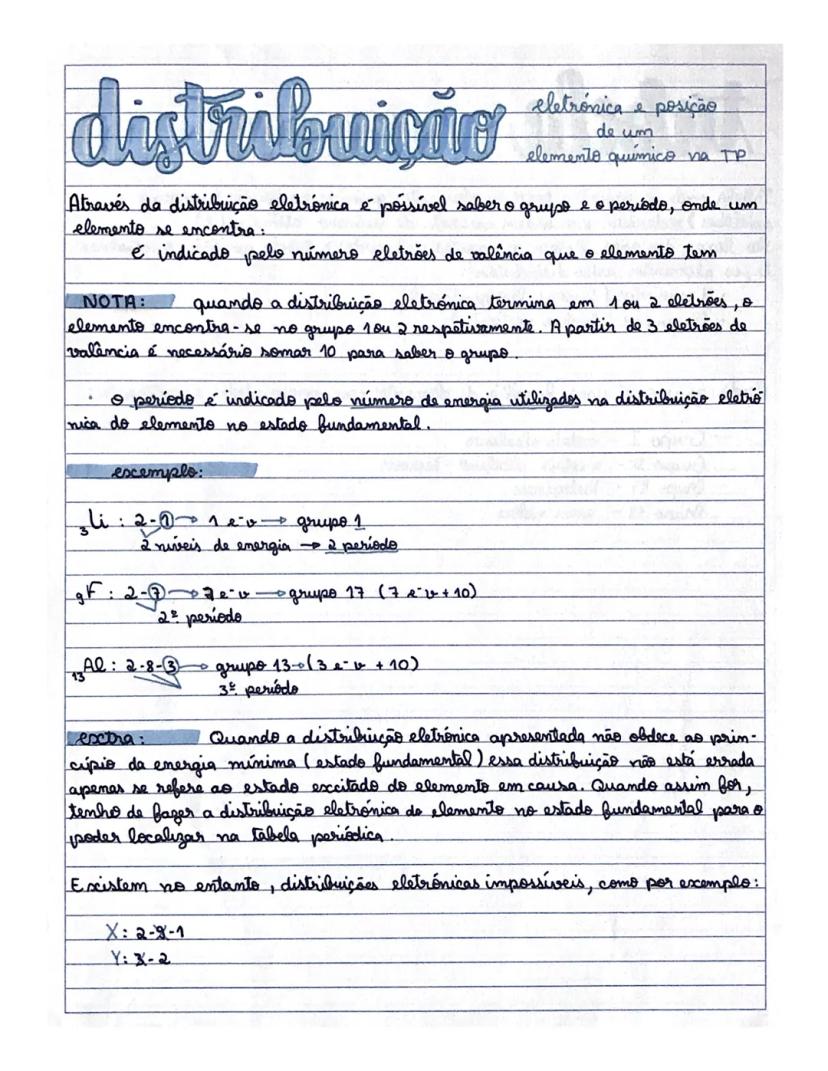 distribuição eletrónica e posição
de um
elemento químico na TP
Através da distribuição eletrónica é póssível saber o grupo e o período, onde um
elemento se encontra:
é indicado pelo número eletrões de valência que o elemento tem
NOTA: quando a distribuição eletrónica termina em 1 ou 2 eletrões, o
elemento encontra-se no grupo 1 ou 2 respetivamente. A partir de 3 eletrões de
valência é necessário somar 10 para saber o grupo.
• O período é indicado pelo número de energia utilizados na distribuição eletró
nica do elemento no estado fundamental.
exemplo:
₃Li : 2-1 → 1 e⁻v → grupo 1
2 níveis de energia → 2 período
₉F : 2-7 → 7 e⁻v → grupo 17 (7 e⁻v + 10)
2º período
₁₃Al : 2-8-3 → grupo 13 → (3 e⁻v + 10)
3º período
extra: Quando a distribuição eletrónica apresentada não obdece ao prin-
cípio da energia mínima (estado fundamental) essa distribuição não está errada
apenas se refere ao estado excitado do elemento em causa. Quando assim for,
tenho de fazer a distribuição eletrónica do elemento no estado fundamental para o
poder localizar na tabela periódica.
Existem no entanto, distribuições eletrónicas impossíveis, como por exemplo:
X: 2-9-1
Y: 3-2